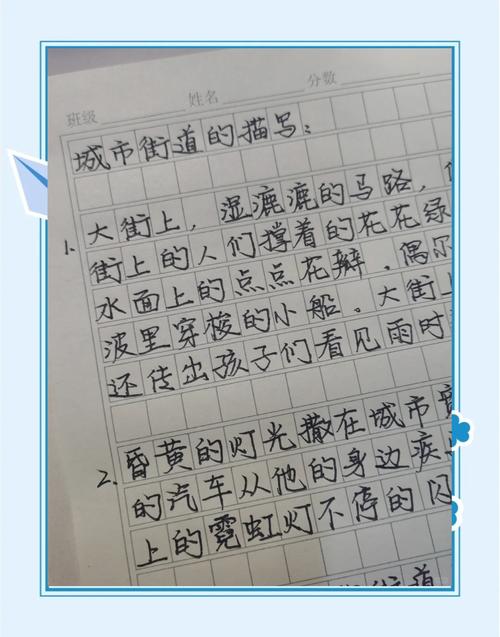 班级 姓名 分数
城市街道的描写：
1. 大街上，湿漉漉的马路，
街上的人们撑着的花花绿
水面上的点点花瓣．偶尔
波里穿梭的小船。大街上
还传出孩子们看见雨时
2. 昏黄的灯光撒在城市
的汽车从他的身边疾
上的霓虹灯不停的闪
街道